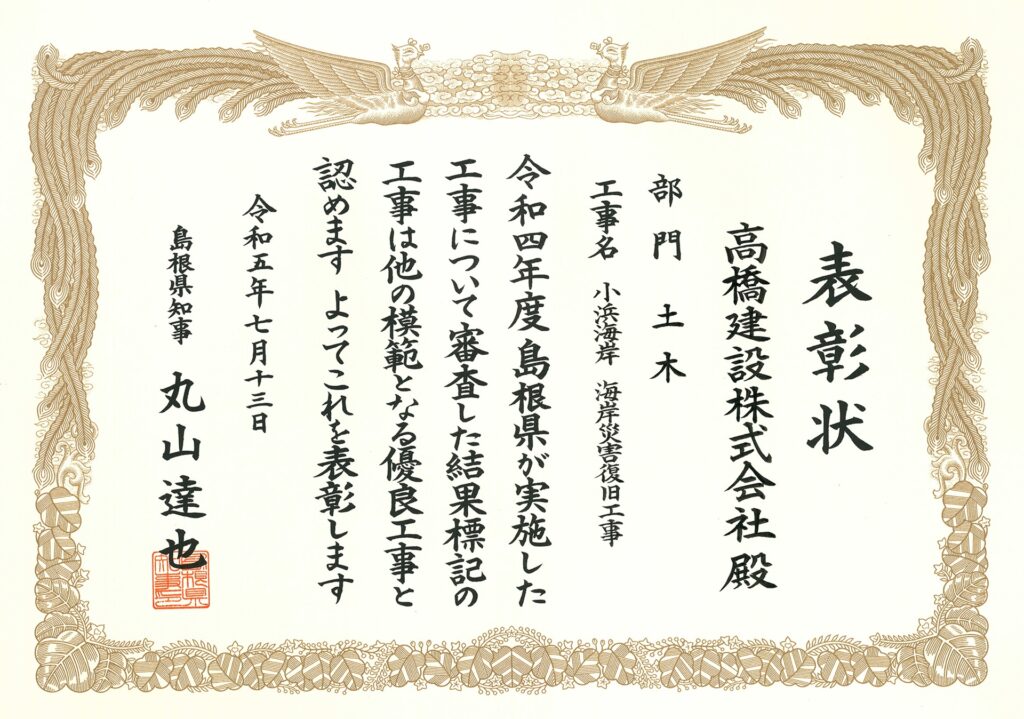 表彰状
高橋建設株式会社 殿
部門 土木
工事名 小浜海岸 海岸災害復旧工事
令和四年度島根県が実施した
工事について審査した結果標記の
工事は他の模範となる優良工事と
認めます よってこれを表彰します
令和五年七月十三日
島根県知事 丸山達也